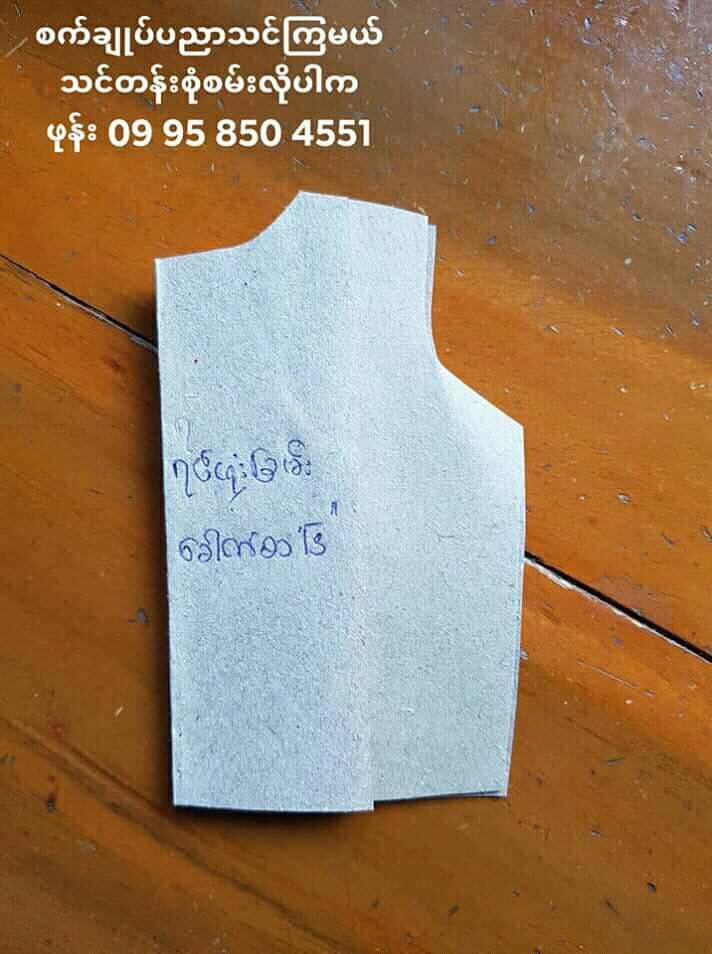 စက်ချုပ်ပညာသင်ကြမယ်
သင်တန်းစုံစမ်းလိုပါက
ဖုန်း 09 95 850 4551
ရင်ဖုံးခြမ်း
ခေါက်စာ